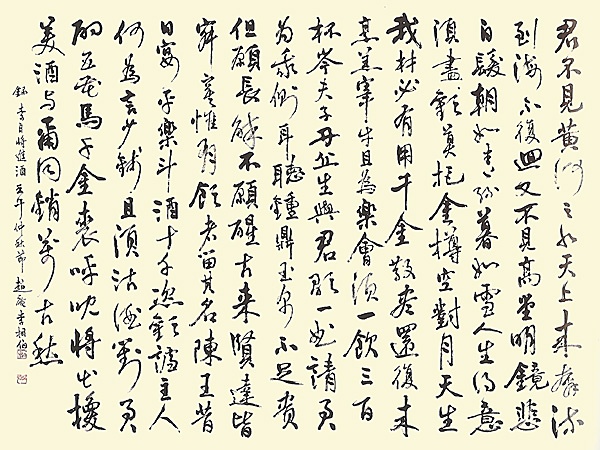 君不見黃河之水天上來奔流
到海不復迴又不見高堂明鏡悲
白髮朝如青絲暮如雪人生得意
須盡歡莫把金樽空對月天生
我材必有用千金散盡還復來
烹羊宰牛且為樂會須一飲三百
杯岑夫子丹丘生與君歌一曲請君
為我側耳聽鐘鼎玉帛不足貴
但願長醉不願醒古來賢達皆
寂寞惟有飲者留其名陳王昔
日宴平樂斗酒十千恣歡謔主人
何為言少錢且須沽酒對君
酌五花馬千金裘呼兒將出換
美酒與爾同銷萬古愁
錄李白將進酒 午仲秋節